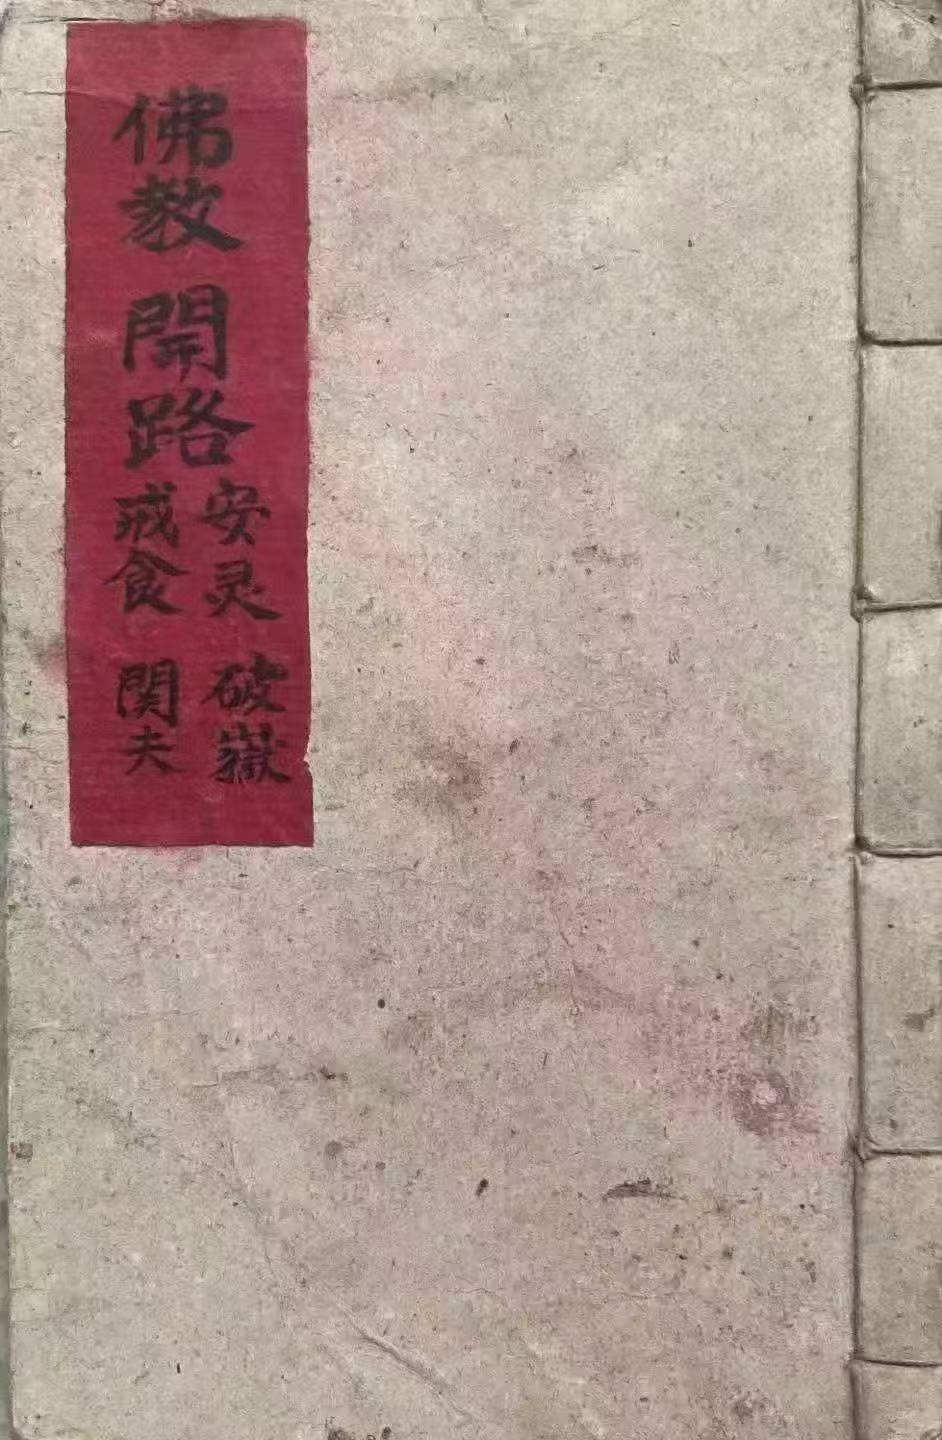 佛教開路
安灵 破嶽
戒食 関夫